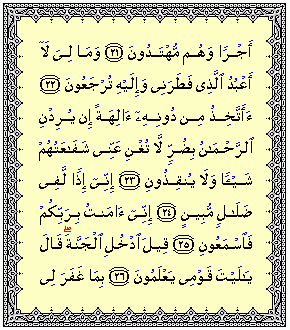 أَجْرًا وَهُم مُّهْتَدُونَ ﴿٢١﴾ وَمَا لِىَ لَآ
أَعْبُدُ ٱلَّذِى فَطَرَنِى وَإِلَيْهِ تُرْجَعُونَ ﴿٢٢﴾
ءَأَتَّخِذُ مِن دُونِهِۦٓ ءَالِهَةً إِن يُرِدْنِ
ٱلرَّحْمَـٰنُ بِضُرٍّ لَّا تُغْنِ عَنِّى شَفَـٰعَتُهُمْ
شَيْـًٔا وَلَا يُنقِذُونِ ﴿٢٣﴾ إِنِّىٓ إِذًا لَّفِى
ضَلَـٰلٍ مُّبِينٍ ﴿٢٤﴾ إِنِّىٓ ءَامَنتُ بِرَبِّكُمْ
فَٱسْمَعُونِ ﴿٢٥﴾ قِيلَ ٱدْخُلِ ٱلْجَنَّةَ ۖ قَالَ
يَـٰلَيْتَ قَوْمِى يَعْلَمُونَ ﴿٢٦﴾ بِمَا غَفَرَ لِى